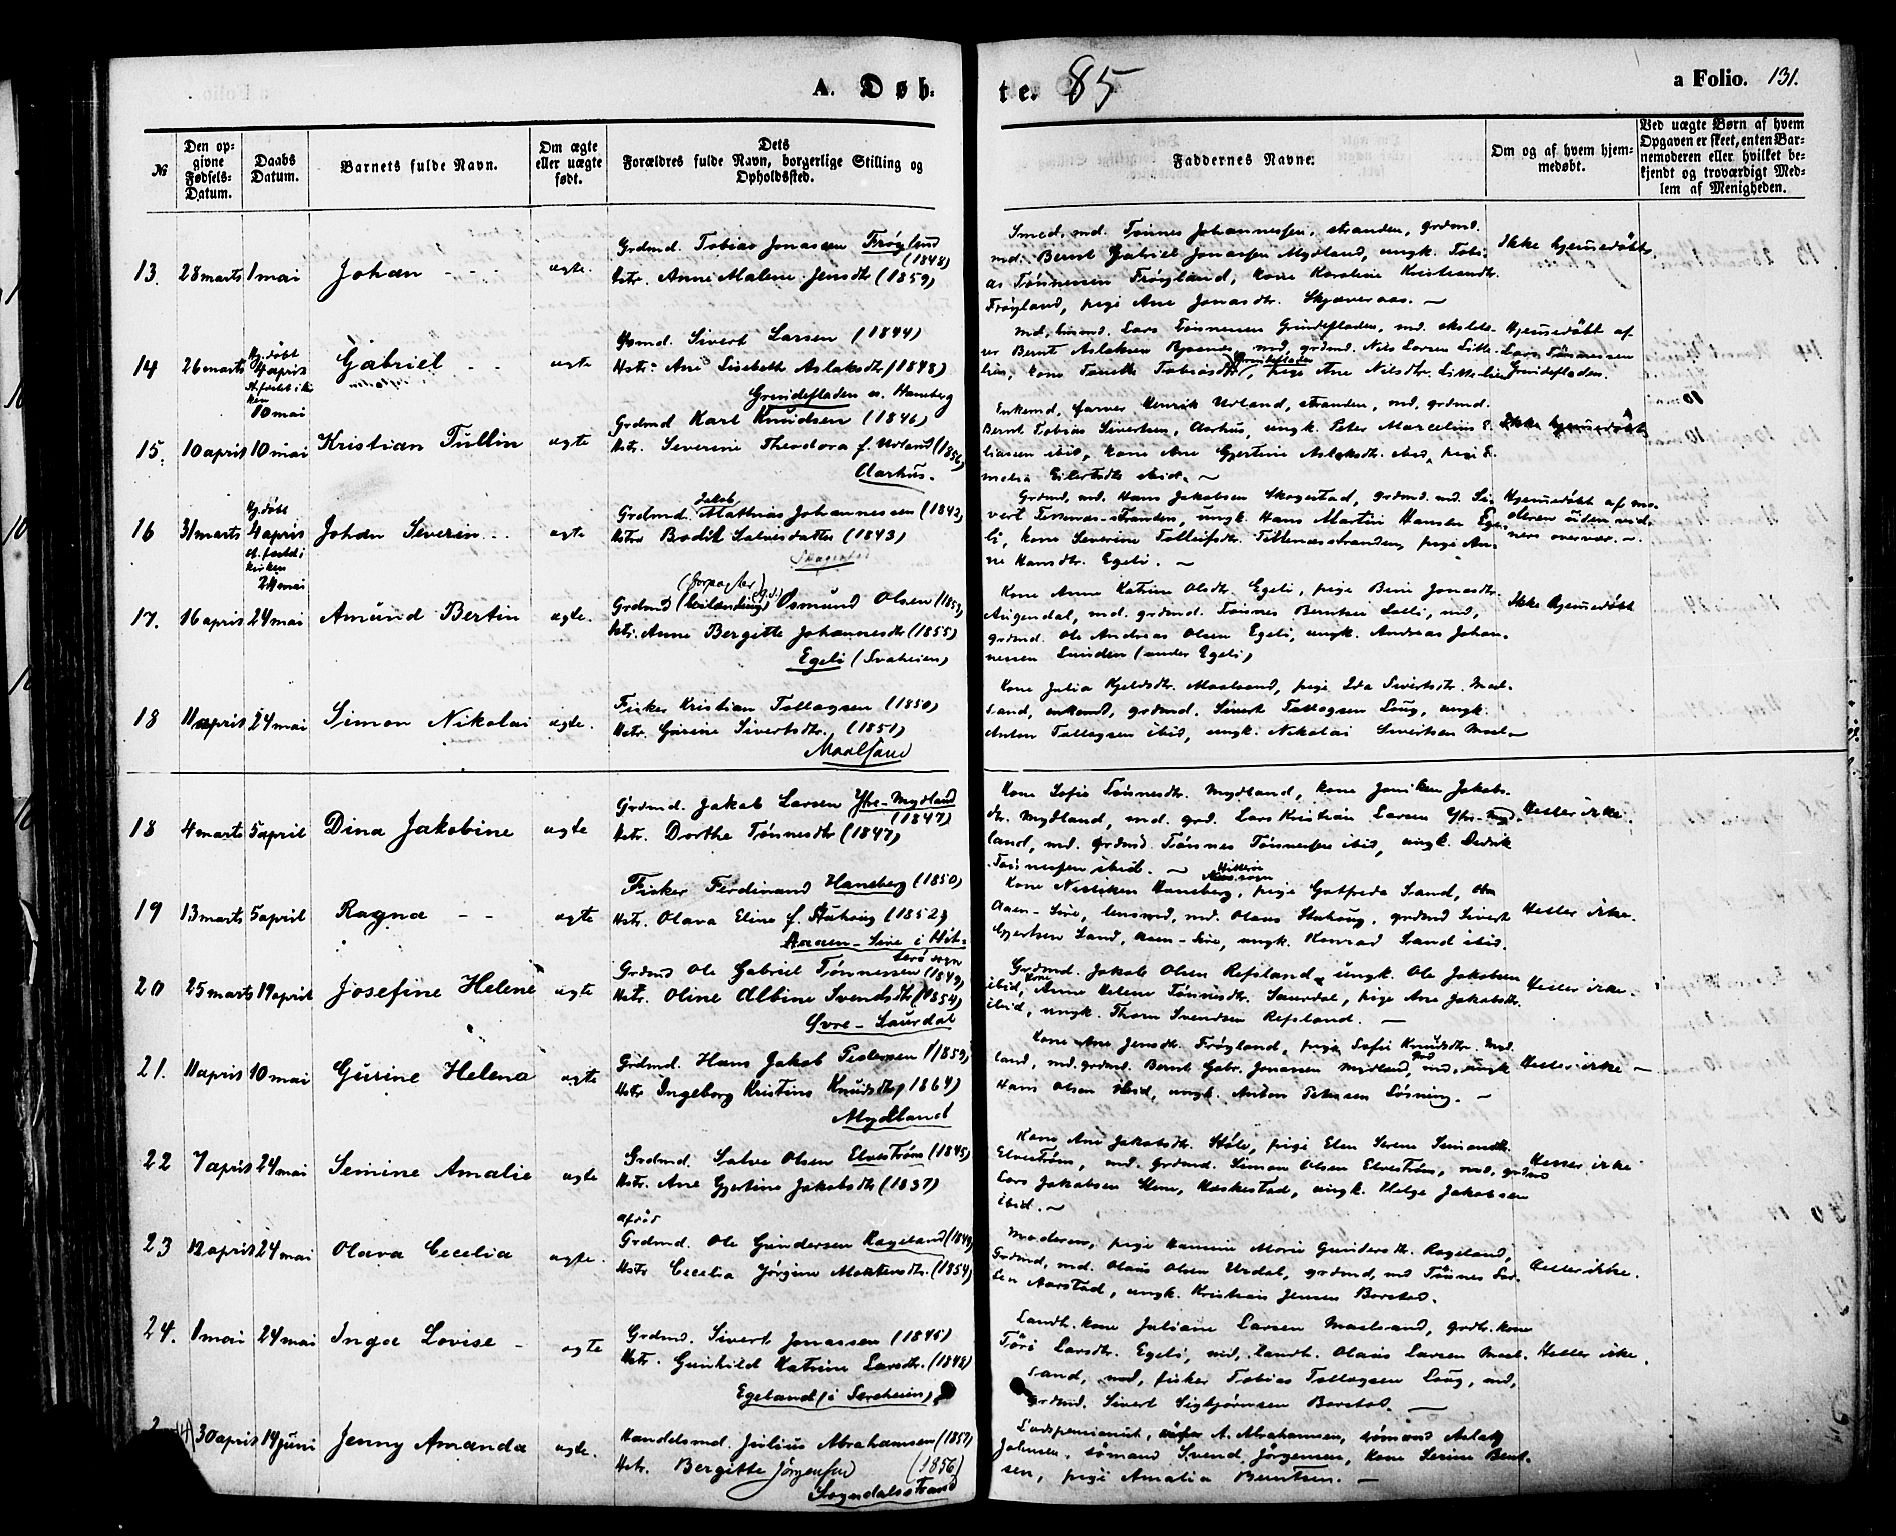 A. Døb-
te. 85
a Folio. 131.
№
Den op-
givne
Fødsels-
Datum.
Daabs
Datum.
Barnets fulde Navn.
Om ægte
eller uægte
født.
Dets
Forældres fulde Navn, borgerlige Stilling og
Opholdssted.
Faddernes Navne:
Om og af hvem hjem-
medøbt.
Ved uægte Børn af hvem
Opgaven er skeet, enten Bar-
nemoderen eller hvilket be-
kjendt og troværdigt Med-
lem af Menigheden.
13. 28 marts 1 mai Johan - - - ægte.
Grdmd. Tobias Jonassen Frøyland (1848)
Hstr. Anne Malene Jensdtr (1859)
Smed, md. Tønnes Johannessen, stranden, grdmd.
md. Bernt Gabriel Jonassen Mydland, ungk. Tobi-
as Tønnessen Frøyland, kone Karoline Kristiansdtr
Frøyland, pige Ane Jonasdtr. Skjæveraas. —
Ikke hjemmedøbt,
14 26 marts Hj.døbt 4 april st.fæstet i kir-
ken 10 mai
Gabriel - - ægte
Hsmd. Sivert Larsen (1844)
Hstr. Ane Lisebeth Aslaksdtr (1848)
Grindefladen u. Haneberg
md, husmd. Lars Tønnessen Grindefladen, md. skole-
rer Bernt Aslaksen Rjaanes, md, grdmd. Nils Larsen Litle-
lien, kone Tonette Tobiasdtr, Grindefladen pige Ane Nilsdtr. Litlelien
Hjemmedøbt af
Lars Tønnessen
Grindefladen.
15. 10 april 10 mai Kristian Tullin ægte
Grdmd Karl Knudsen (1846)
Hstr. Severine Theodora f. Urland (1856)
Aarhus.
Enkemd, farver Henrik Urland, stranden, md, grdmd.
Bernt Tobias Sivertsen, Aarhus, ungk. Peter Marcelius E-
liassen ibid, kone Ane Gjertine Aslaksdtr. ibid, pige E-
melia Eilertsdtr ibid. —
Ikke hjemmedøbt
16 31 marts Hj.døbt 4 april st. fæstet i
kirken
24 mai
Johan Severin - - ægte
Grdmd. Jakob Mathias Johannessen (1842)
Hstr Bodil Salvesdatter (1843)
Skogestad
Grdmd, md. Hans Jakobsen Skogestad, grdmd. md. Si-
vert Tittenes-stranden, ungk. Hans Martin Hansen Ege-
li, kone Severine Tollefsdtr. Tittenesstranden, pige An-
ne Hansdtr. Egeli. —
Hjemmedøbt af mo-
deren uden vid-
ners overvær. —
17. 16 april 24 mai Amund Bertin ægte.
(forpagter)
Grdmd Osmund Olsen (1853)
Hstr. Anne Bergitte Johannesdtr (1855)
Egeli (Svaheien)
Kone Anne Katrine Olsdtr. Egeli, pige Bine Jonasdtr.
Augendal, md. grdmd. Tønnes Berntsen Lølli, md,
grdmd. Ole Andreas Olsen Egeli, ungk. Andreas Johan-
nessen Lunden (under Egeli)
Ikke hjemmedøbt
18 11 april 24 mai Simon Nikolai ægte.
Fisker Kristian Tollagsen (1850)
Hstr. Gurine Sivertsdtr. (1851)
Maalsand
Kone Julia Kjeldsdtr. Maalsand, pige Ida Sivertsdtr. Maal-
sand, enkemd, grdmd. Sivert Tollagsen Loug, ungk.
Anton Tollagsen ibid, ungk. Nikolai Sivertsen Maal—
18 4 marts 5 april Dina Jakobine ægte
Grdmd. Jakob Larsen Ytre-Mydland (1847)
Hstr. Dorthe Tønnesdtr (1847)
Kone Sofie Tønnesdtr. Mydland, kone Joniken Jakobs-
dtr. Mydland, md. grd. Lars Kristian Larsen Ytr-Myd-
land, md. grdmd. Tønnes Tønnessen ibid, ungk. Didrik
Tønnessen ibid. —
Heller ikke.
19 13 marts 5 april Ragna - - ægte
Fisker Ferdinand Haneberg (1850)
Hstr. Olava Eline f. Stuhaug (1852)
Aaen-Sire i Hit-
terø sogn
Kone Niliken Haneberg, pige Gotfreda Sand,
Aaen-Sire, lensmd, md. Olaus Stuhoug, grdmd Sivert
Gjertsen Sand, Aaen-Sire, ungk. Konrad Sand ibid.
Heller ikke.
20 25 marts 19 april Josefine Helene ægte
Grdmd Ole Gabriel Tønnessen (1849)
Hstr. Oline Albine Svendsdtr (1854)
Øvre-Saurdal
Grdmd. Jakob Olsen Refsland, ungk. Ole Jakobsen
ibid, kone Anne Helene Tønnesdtr. Saurdal, pige Ane Jakobsdtr.
ibid, ungk. Thorn Svendsen Refsland. —
Heller ikke.
21. 11 april 10 mai Gurine Helena ægte
Grdmd. Hans Jakob Pedersen (1859)
Hstr Ingeborg Kristine Knudsdtr (1864)
Mydland
Kone Ane Jensdtr. Frøyland, pige Sofie Knudsdtr. Myd-
land, md. grdmd. Bernt Gabr. Jonassen Mydland, md, ungk
Hans Olsen ibid, ungk. Anton Petersen Løsning. —
Heller ikke —
22 7 april 24 mai Semine Amalie ægte
Grdmd. Salve Olsen Elvestrøm (1845)
Hstr. Ane Gjertine Jakobsdtr (1837)
Kone Ane Jakobsdtr. Støle, pige Elen Serene Simonsdtr.
Elvestrøm, md. grdmd. Simon Olsen Elvestrøm, md, grdmd
Lars Jakobsen Stene, Heskestad, ungk. Helge Jakobsen
ibid. —
Heller ikke
23 12 april 24 mai Olava Cecelia ægte.
afdød
Grdmd. Ole Gundersen Rageland (1849)
Hstr Cecelia Jørgine Mortensdtr. (1854)
Moderen, pige Hansine Marie Gundersdtr. Rageland,
Grdmd, md. Olaus Olsen Urdal, grdmd, md Tønnes Lar-
sen Aarstad, ungk. Kristian Jensen Barstad.
Heller ikke.
24. 1 mai 24 mai Inga Lovise - ægte
Grdmd. Sivert Jonassen (1845)
Hstr. Gunhild Katrine Larsdtr. (1848)
Egeland (i Særeheien)
Landh. kone Juliane Larsen Maalsand, grdb. kone
Tøri Larsdtr. Egeli, md, landh. Olaus Larsen Maal-
sand, md, fisker Tobias Tollagsen Loug, md,
grdmd. Sivert Sigbjørnsen Barstad. —
Heller ikke.
30 april 14 juni Jenny Amanda ægte.
Handelsmd. Julius Abrahamsen (1851)
Hstr. Bergitte Jørgensen (1856)
Sogndalsstrand
Lodspensionist, A. Abrahamsen, sømand Aslag
Johnsen, sømand Svend Jørgensen, kone Serine Bent-
sen, pige Amalia Berntsen. —